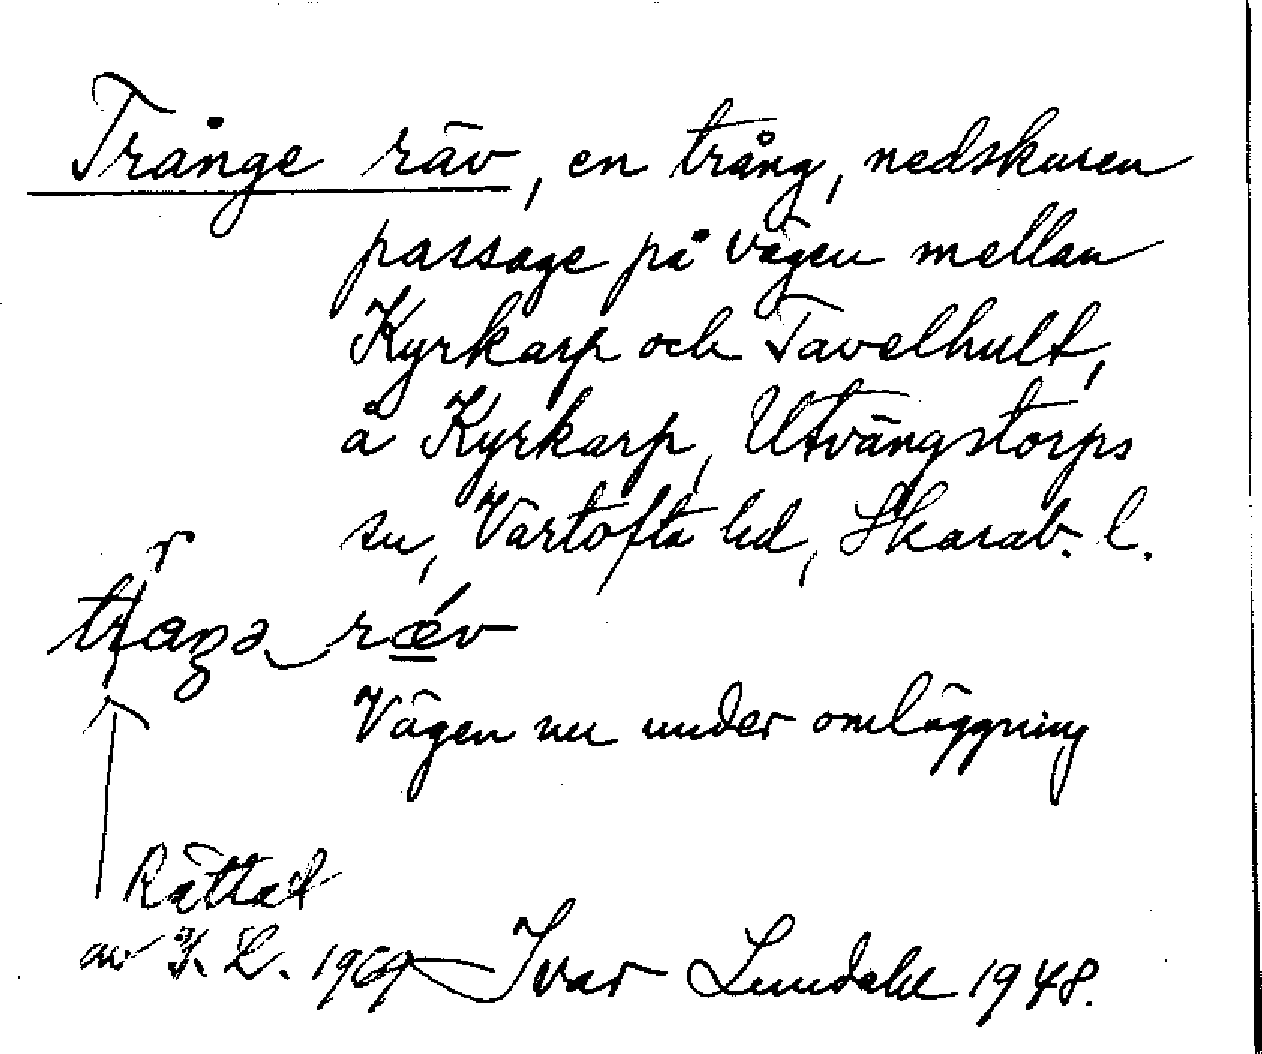 Trånge räv, en trång, nedskuren
passage på vägen mellan
Kyrkarp och Tavelhult,
å Kyrkarp, Utvängstorps
sn, Vartofta hd, Skarab. l.
r
räv
Vägen nu under omläggning
Rättat
av I. L. 1969 Ivar Lundahl 1948.